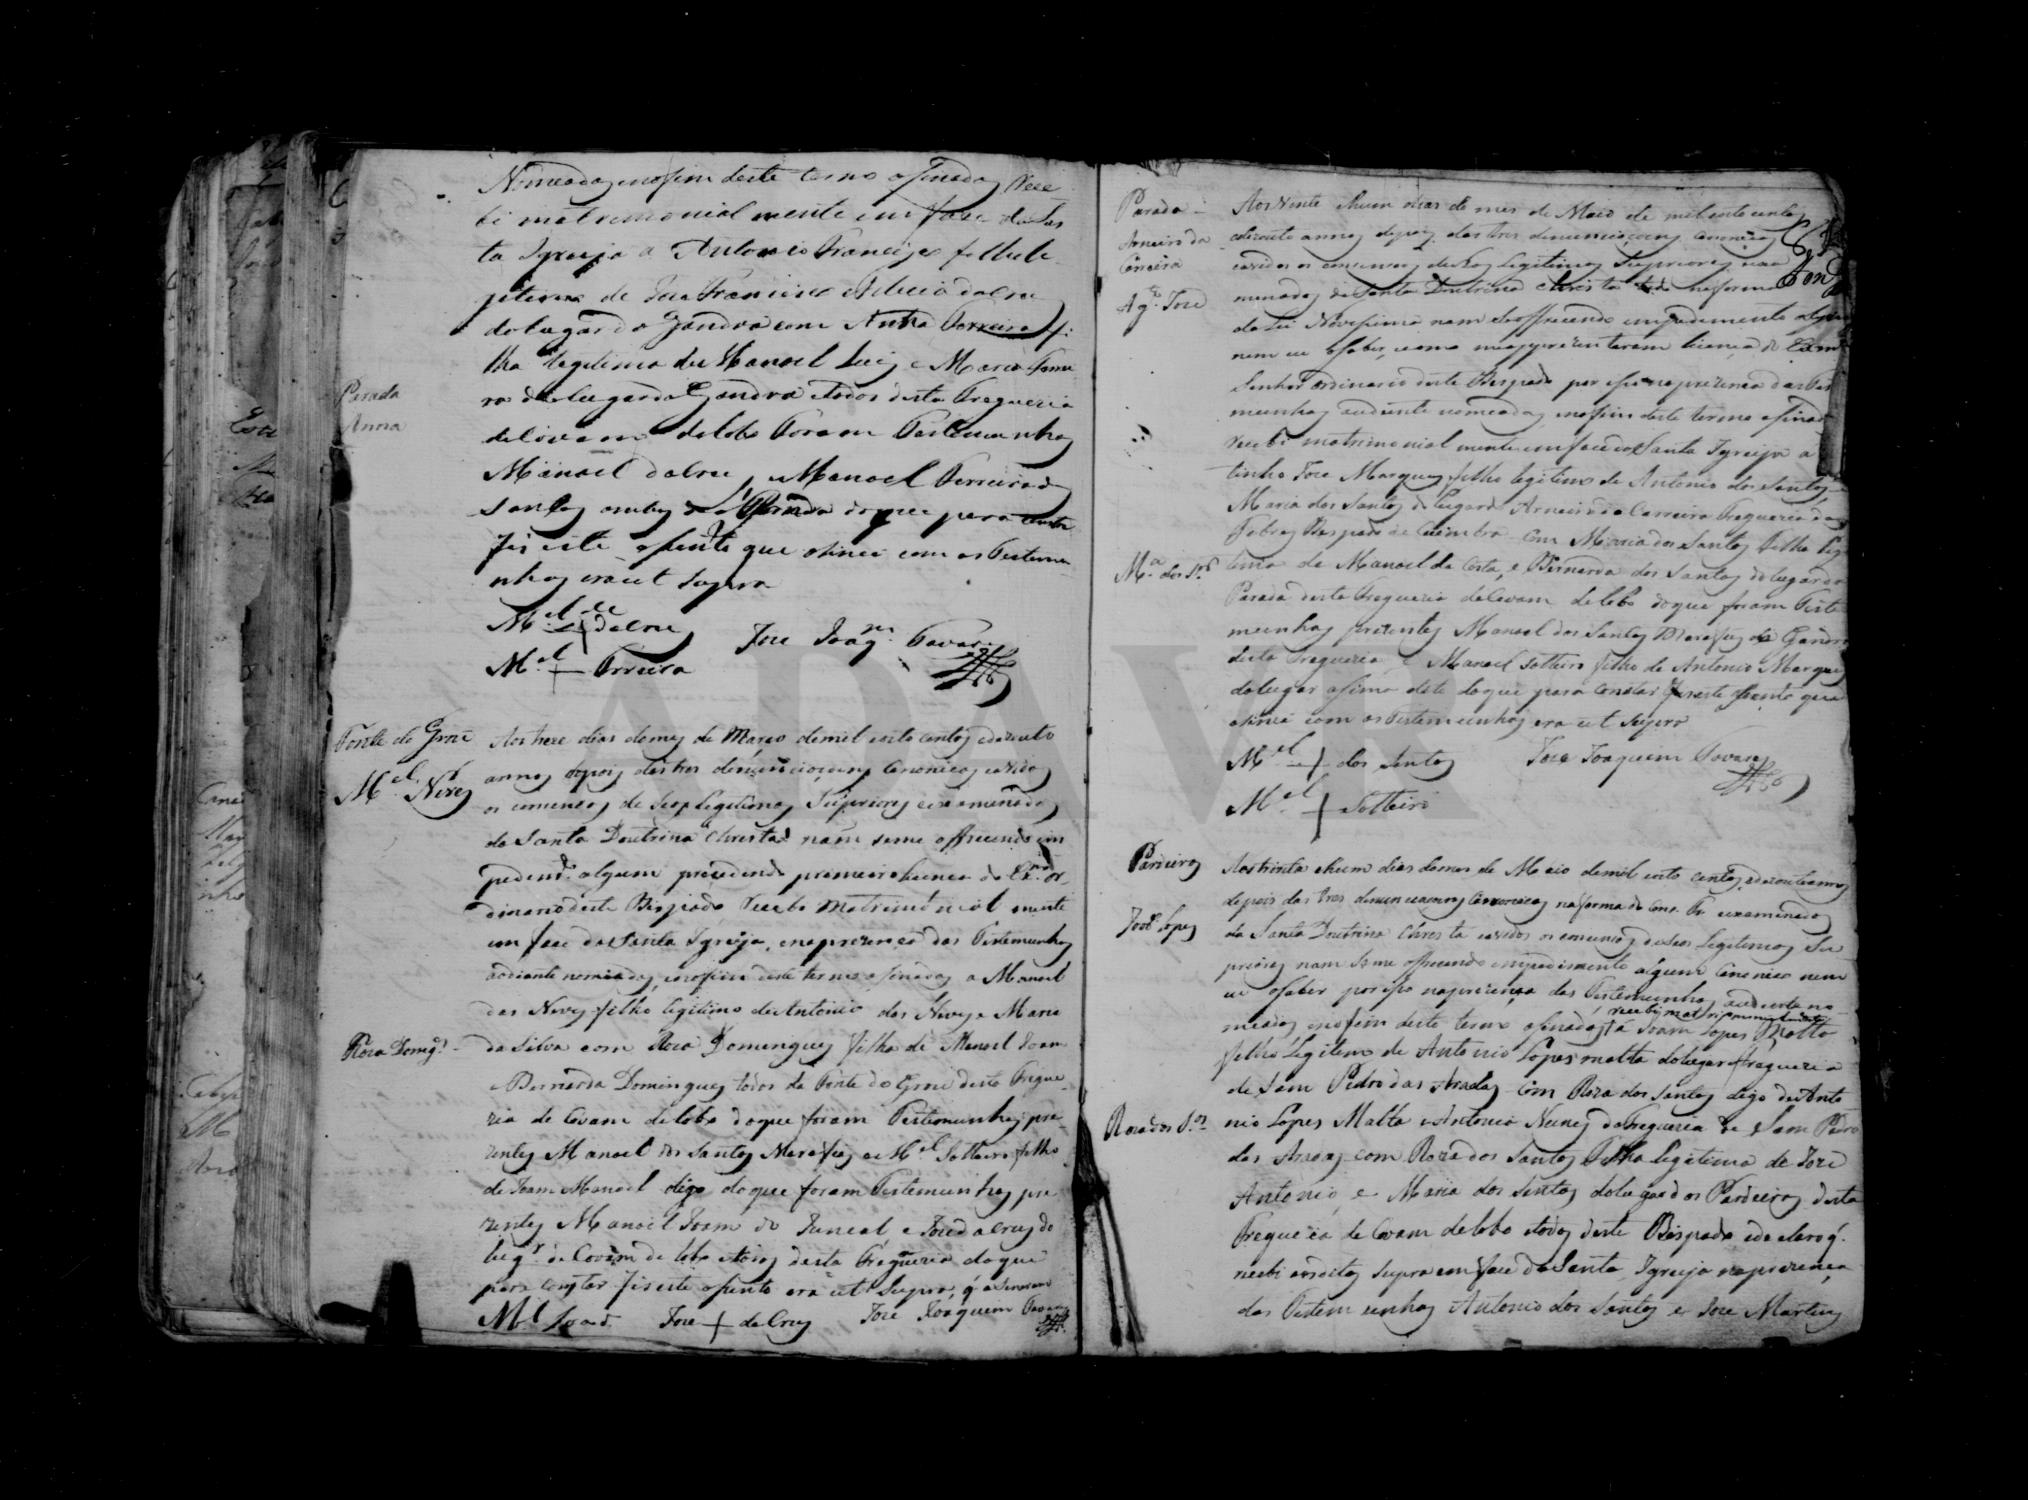 Nomeadas, e no fim deste termo asinadas Rece
bi matrimonial mente em face desta San
ta Igreja a Antonio Francisco filho le
gitimo de Joze Francisco e Luzia da Cruz
do lugar da Gandra com Anna Ferreira fi
lha legitima de Manoel Luiz e Maria Ferrei
ra do lugar da Gandra e todos desta Freguezia
de Covam de Lobo Foram Testemunhas
Manoel da Cruz, e Manoel Ferreira dos
Santos ambos da Parada do que para constar
fis este asento que asinei com as Testemu
nhas era ut supra
M.el da Cruz
Joze Joaq.m Tavares
M.el + Ferreira
Parada
Anna
Fonte de Grou
M.el Neves
Aos treze dias do mes de Março de mil oito centos e dezouto
annos depois das tres denunciaçoens Canonicas corridos
os concensos de seos Legitimos Supriores e examinados
da Santa Doutrina Christã nam se me offrecendo im
pedim.to algum precedendo primeiro licença do Ex.mo Or
dinario deste Bispado Recebi matrimonial mente
em face da Santa Igreja, e na prezença das Testemunhas
adiante nomeadas, e no fim deste termo asinadas a Manoel
das Neves filho legitimo de Antonio das Neves e Maria
da Silva com Roza Domingues filha de Manoel Joam
e Bernarda Domingues todos da Fonte do Grou desta Fregue
zia de Covam de Lobo do que foram Testemunhas pre
zentes Manoel dos Santos e M.el Solteiro filho
de Joam Manoel digo do que foram Testemunhas pre
zentes Manoel Joam do Juncal, e Joze da Cruz do
lug.r de Covam de Lobo e todos desta Freguezia do que
para constar fis este asento era ut supra, q asinaram
M.el Joad. Joze + da Cruz Joze Joaquim Tavares
Roza Domg.s
Parada
Arneiro da
Carreira
Ag.to Joze
Aos vinte e hum dias do mes de Maio de mil oito centos
e dezouto annos depois das tres denunciaçoens Canonicas
corridos os concensos de seos Legitimos Supriores exa
minados da Santa Doutrina Christã na forma
da Lei Novissima nam se offrecendo impedimento algum
nem eu o saber, e como me apprezentaram licença do Ex.mo
Senhor Ordinario deste Bispado por iso na prezença das Tes
temunhas adiante nomeadas, e no fim deste termo asinadas
recebi matrimonial mente em face da Santa Igreja a
tinho Joze Marques filho legitimo de Antonio dos Santos e
Maria dos Santos do lugar do Arneiro da Carreira Freguezia das
Febres Bispado de Coimbra Com Maria dos Santos filha legi
tima de Manoel da Costa, e Bernarda dos Santos do lugar da
Parada desta Freguezia de Covam de Lobo do que foram Teste
munhas prezentes Manoel dos Santos da Gandra
desta Freguezia, e Manoel Solteiro filho de Antonio Marques
do lugar asima dito do que para constar fis este asento que
asinei com as Testemunhas era ut supra
M.el + dos Santos
Joze Joaquim Tavares
M.el + Solteiro
M.a dos S.tos
Pardieiros
Joam Lopes
Aos trinta e hum dias do mes de Maio de mil oito centos e dezouto annos
depois das tres denunciaçoens Canonicas na forma do Con. Tr. examinados
da Santa Doutrina Christã corridos os concensos de seos Legitimos Su
priores nam se me offrecendo impedimento algum Canonico nem
eu o saber por iso na prezença das Testemunhas adiante no
meadas, e no fim deste termo asinadas recebi matrimonialmente a Joam Lopes Matto
filho Legitimo de Antonio Lopes matta do lugar e freguezia
de Sam Pedro das Aradas Com Roza dos Santos digo de Anto
nio Lopes Matta e Antonia Nunes da Freguezia de Sam Pedro
das Aradas com Roza dos Santos Filha legitima de Joze
Antonio, e Maria dos Santos do lugar dos Pardieiros desta
Freguezia de Covam de Lobo e todos deste Bispado e declaro q.
recebi os ditos supra em face da Santa Igreja na prezença
das Testemunhas Antonio dos Santos e Joze Martins
Roza dos S.tos
ADAVR